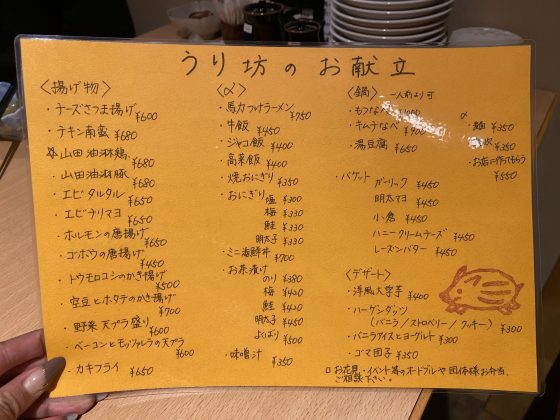 うり坊のお献立
〈揚げ物〉
・チーズさつま揚げ ¥600
・チキン南蛮 ¥680
山田油淋鶏 ¥680
・山田油淋豚 ¥680
・エビタルタル ¥650
・エビチリマヨ ¥650
・ホルモンの唐揚げ ¥650
・ゴボウの唐揚げ ¥450
・トウモロコシのかき揚げ ¥500
・空豆とホタテのかき揚げ ¥700
・野菜天プラ盛り ¥600
・ベーコンとモッツァレラの天プラ ¥600
・カキフライ ¥650
〈α〉
・馬力つけラーメン ¥750
・牛飯 ¥450
・ジャコ飯 ¥400
・高菜飯 ¥400
・焼おにぎり ¥350
・おにぎり
塩 ¥300
梅 ¥330
鮭 ¥330
明太子 ¥330
・ミニ海鮮丼 ¥700
・お茶漬け
のり ¥380
梅 ¥420
鮭 ¥420
明太子 ¥450
よくばり ¥500
・味噌汁 ¥350
〈鍋〉 一人前より可
・もつなべ
・キムチなべ
・湯豆腐 ¥650
α
・麺 ¥350
¥350
・お店に作ってもらう ¥550
・バケット
ガーリック ¥450
明太マヨ ¥450
小倉 ¥450
ハニークリームチーズ ¥450
レーズンバター ¥450
〈デザート〉
・洋風大学芋 ¥400
・ハーゲンダッツ
(バニラ/ストロベリー/クッキー) ¥300
・バニラアイスとヨーグルト ¥300
・ゴマ団子 ¥350
□お花見・イベント等のオードブルや団体様お弁当、
ご相談下さい。